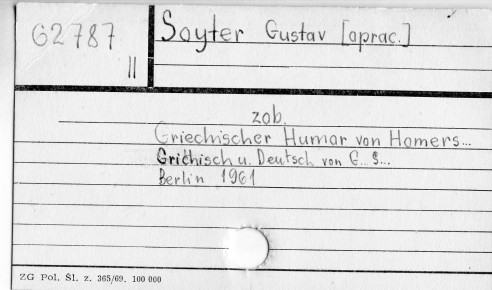 62787
II
Soyter Gustav [oprac.]
zob.
Griechischer Humor von Homers...
Grichisch u. Deutsch von G... S...
Berlin 1961
ZG Pol. Śl. z. 365/69. 100 000